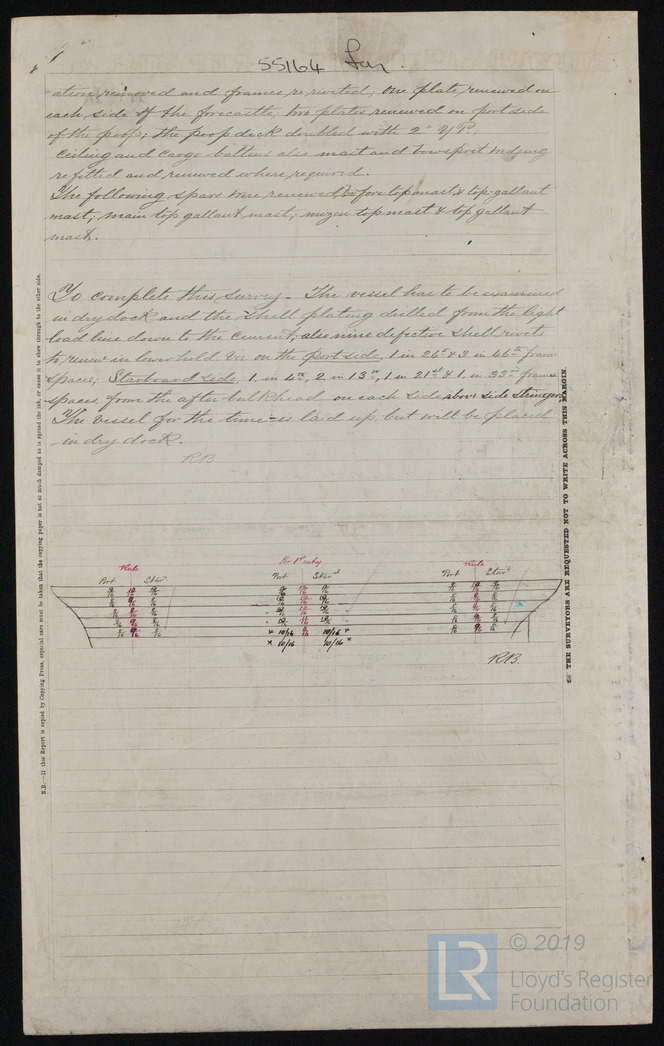 55164 Lon.
ation removed and frames reriveted; one plate renewed on
each side of the forecastle, two plates renewed on port side
of the poop; the poop deck doubled with 2" Y/P.
Ceiling and cargo battens also mast and bowsprit wedging
refitted and renewed where required.
The following spars were renewed, fore topmast & top gallant
mast; main top gallant mast; mizen topmast & top gallant
mast.
To complete this survey - The vessel has to be examined
in dry dock and the shell plating drilled from the light
load line down to the cement; also nine defective shell rivets
to renew in lower hold viz on the port side, 1 in 26th & 3 in 46th frame
spaces; Starboard side, 1 in 4th, 2 in 13th, 1 in 21st & 1 in 33rd frame
spaces, from the after bulkhead on each side above side stringer.
The vessel for the time is laid up, but will be placed
in dry dock.
RB
Rule
Port Star
Port Stard
Rule
Port Stard
× 10/16 10/16 ×
× 10/16 10/16 ×
RB.
N.B.—If this Report is copied by Copying Press, especial care must be taken that the copying paper is not so much damped as to spread the ink, or cause it to show through to the other side.
THE SURVEYORS ARE REQUESTED NOT TO WRITE ACROSS THIS MARGIN.
LR
© 2019
Lloyd's Register
Foundation